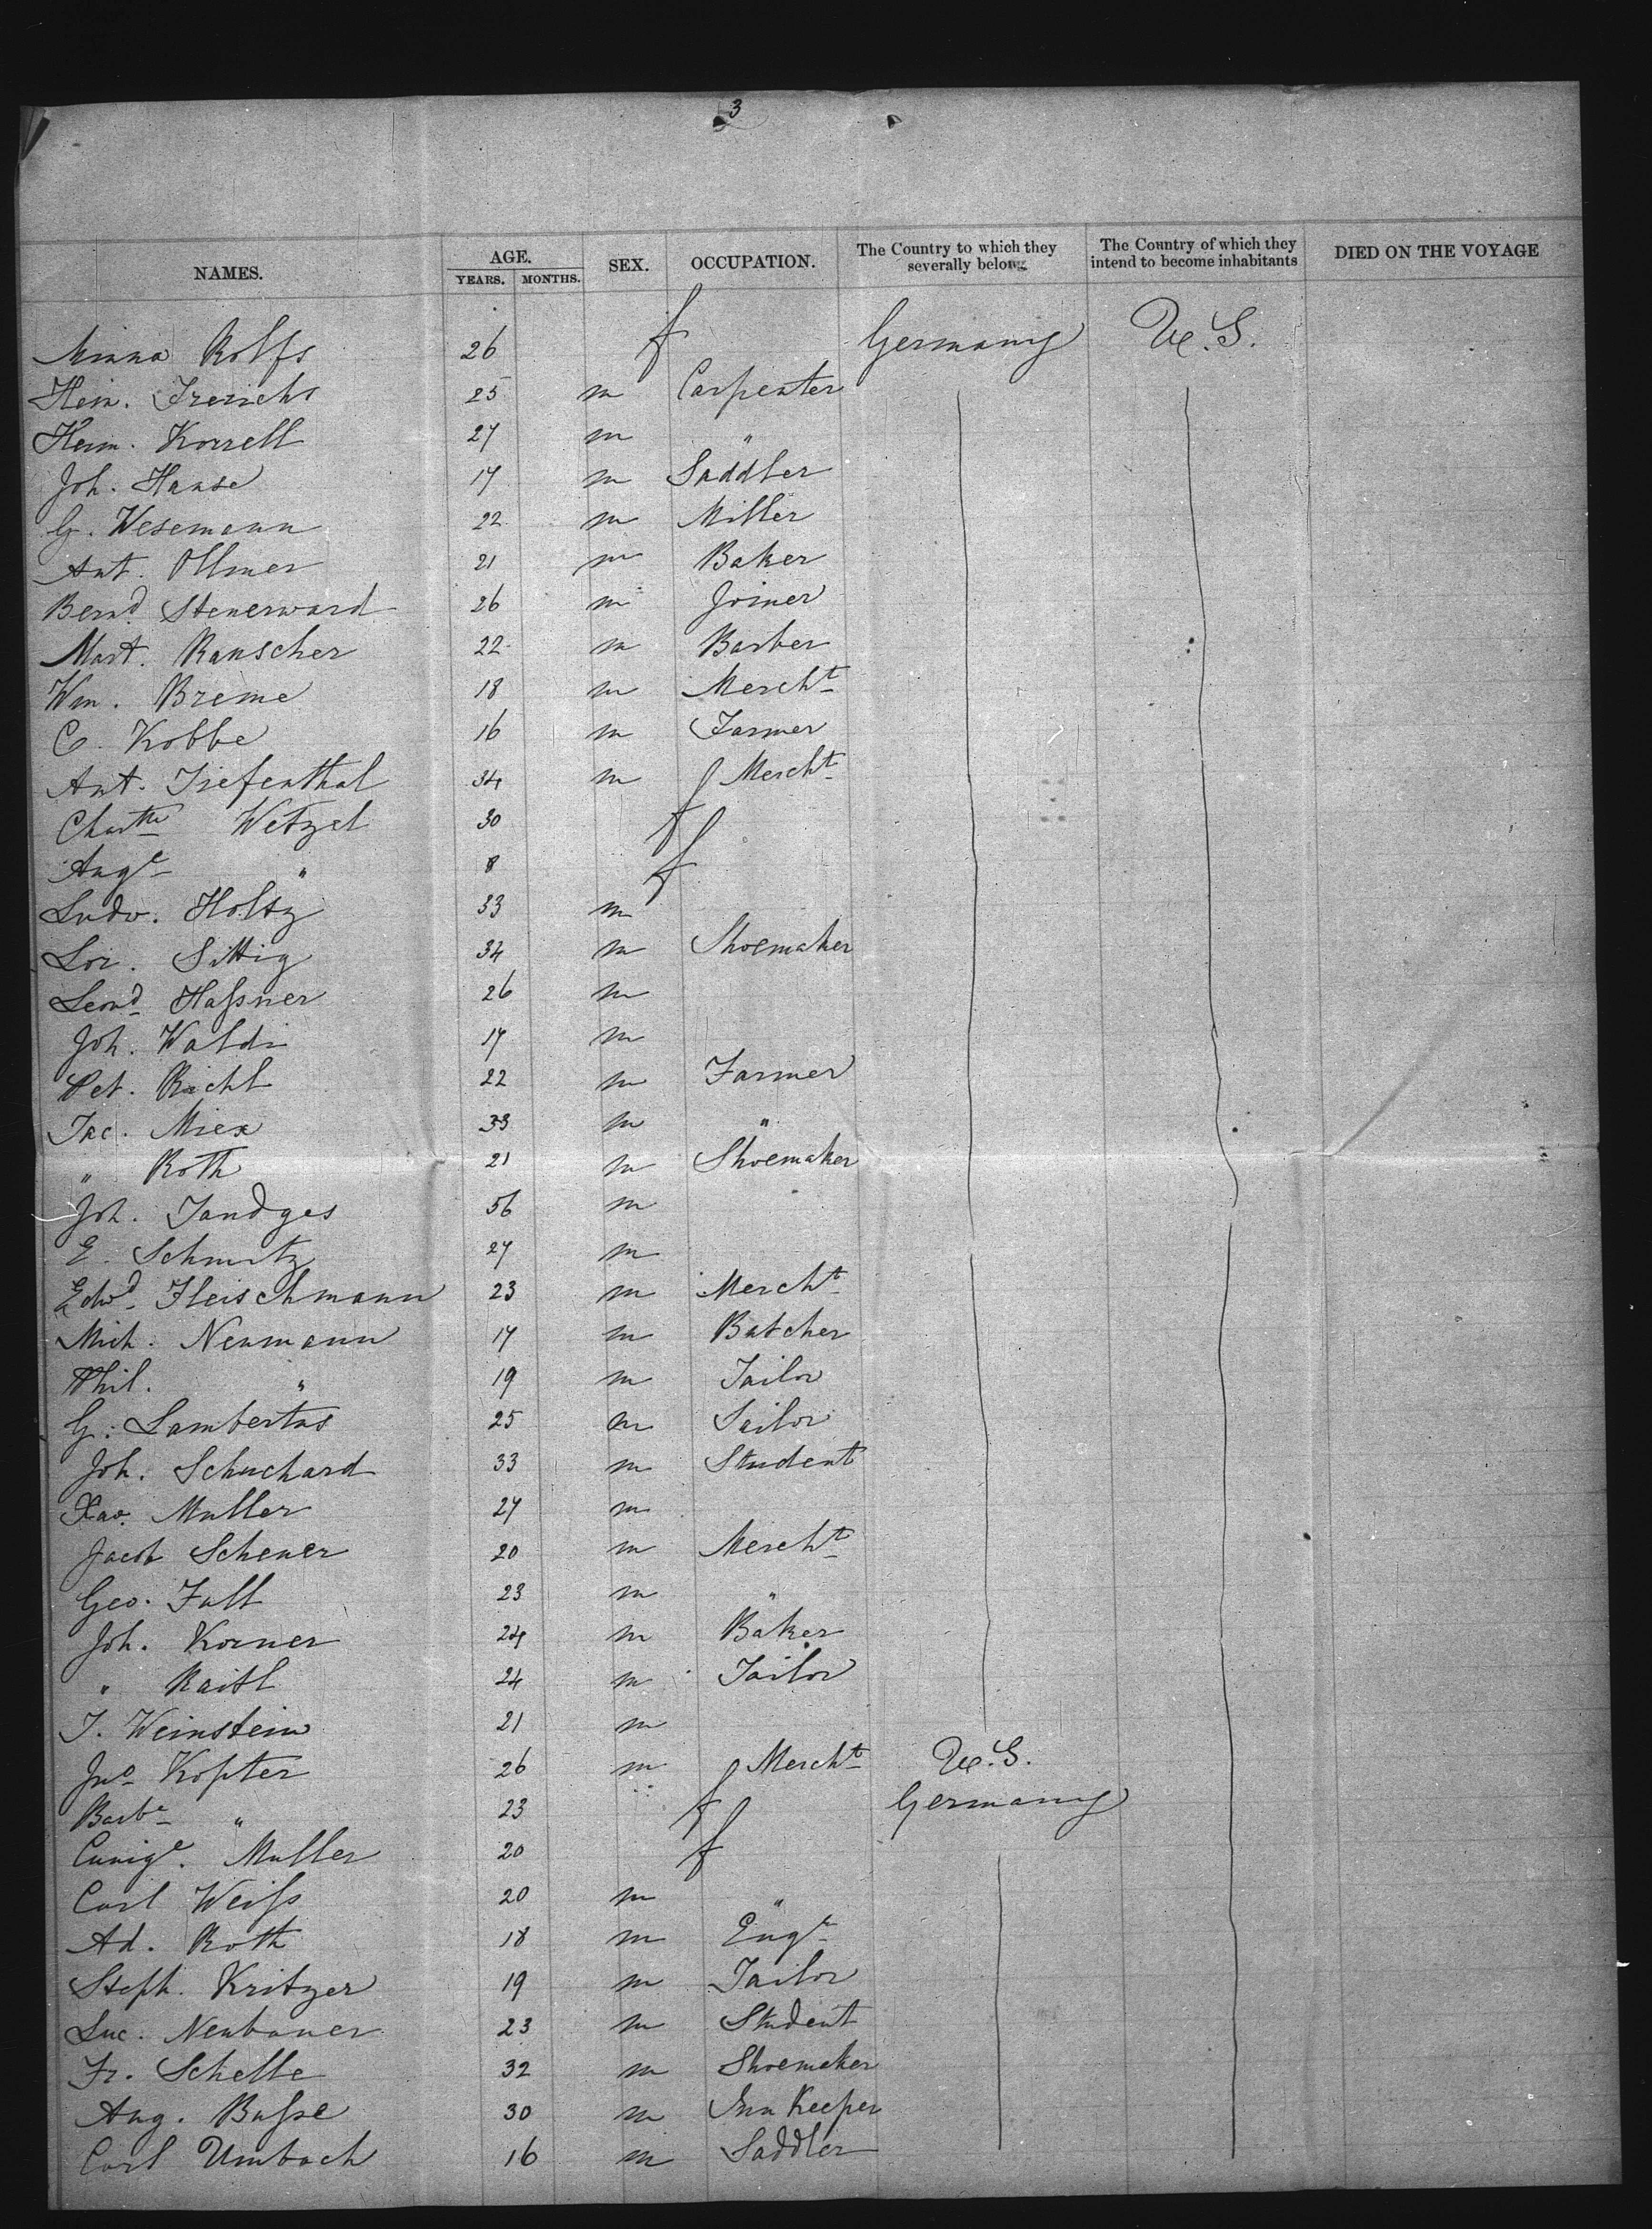 3
NAMES. AGE. YEARS. MONTHS. SEX. OCCUPATION. The Country to which they severally belong The Country of which they intend to become inhabitants DIED ON THE VOYAGE
Minna Rolfs 26 f Germany U.S.
Hein. Frerichs 25 m Carpenter
Herm. Korrell 27 m "
Joh. Hanse 17 m Saddler
G. Wesemann 22 m Miller
Ant. Ollmer 21 m Baker
Bernd Stenerward 26 m Joiner
Mart. Rauscher 22 m Barber
Wm. Breme 18 m Mercht
C. Kobbe 16 m Farmer
Ant. Tiefenthal 34 m Mercht
Chartte Wetzel 30 f
Auge " 8 f
Ludw. Holtz 33 m
Lor. Sittig 34 m Shoemaker
Leond Haſsner 26 m
Joh. Waldi 17 m
Pet. Richl 22 m Farmer
Jac. Miex 33 m "
" Roth 21 m Shoemaker
Joh. Jandges 56 m
E. Schmitz 27 m
Edwd Fleischmann 23 m Mercht
Mich. Neumann 17 m Butcher
Phil. " 19 m Tailor
G. Lambertus 25 m Sailor
Joh. Schuchard 33 m Student
Xav. Muller 27 m
Jacob Scheuer 20 m Mercht
Geo. Fall 23 m "
Joh. Korner 24 m Baker
" Raitl 24 m Tailor
J. Weinstein 21 m
Jno Kopter 26 m Mercht U.S.
Barbe " 23 f Germany
Cunige. Muller 20 f
Carl Weiſs 20 m "
Ad. Roth 18 m Engr
Steph. Kritzer 19 m Tailor
Luc. Neubauer 23 m Student
Fr. Schelle 32 m Shoemaker
Aug. Buſse 30 m Inn Keeper
Carl Umbach 16 m Saddler